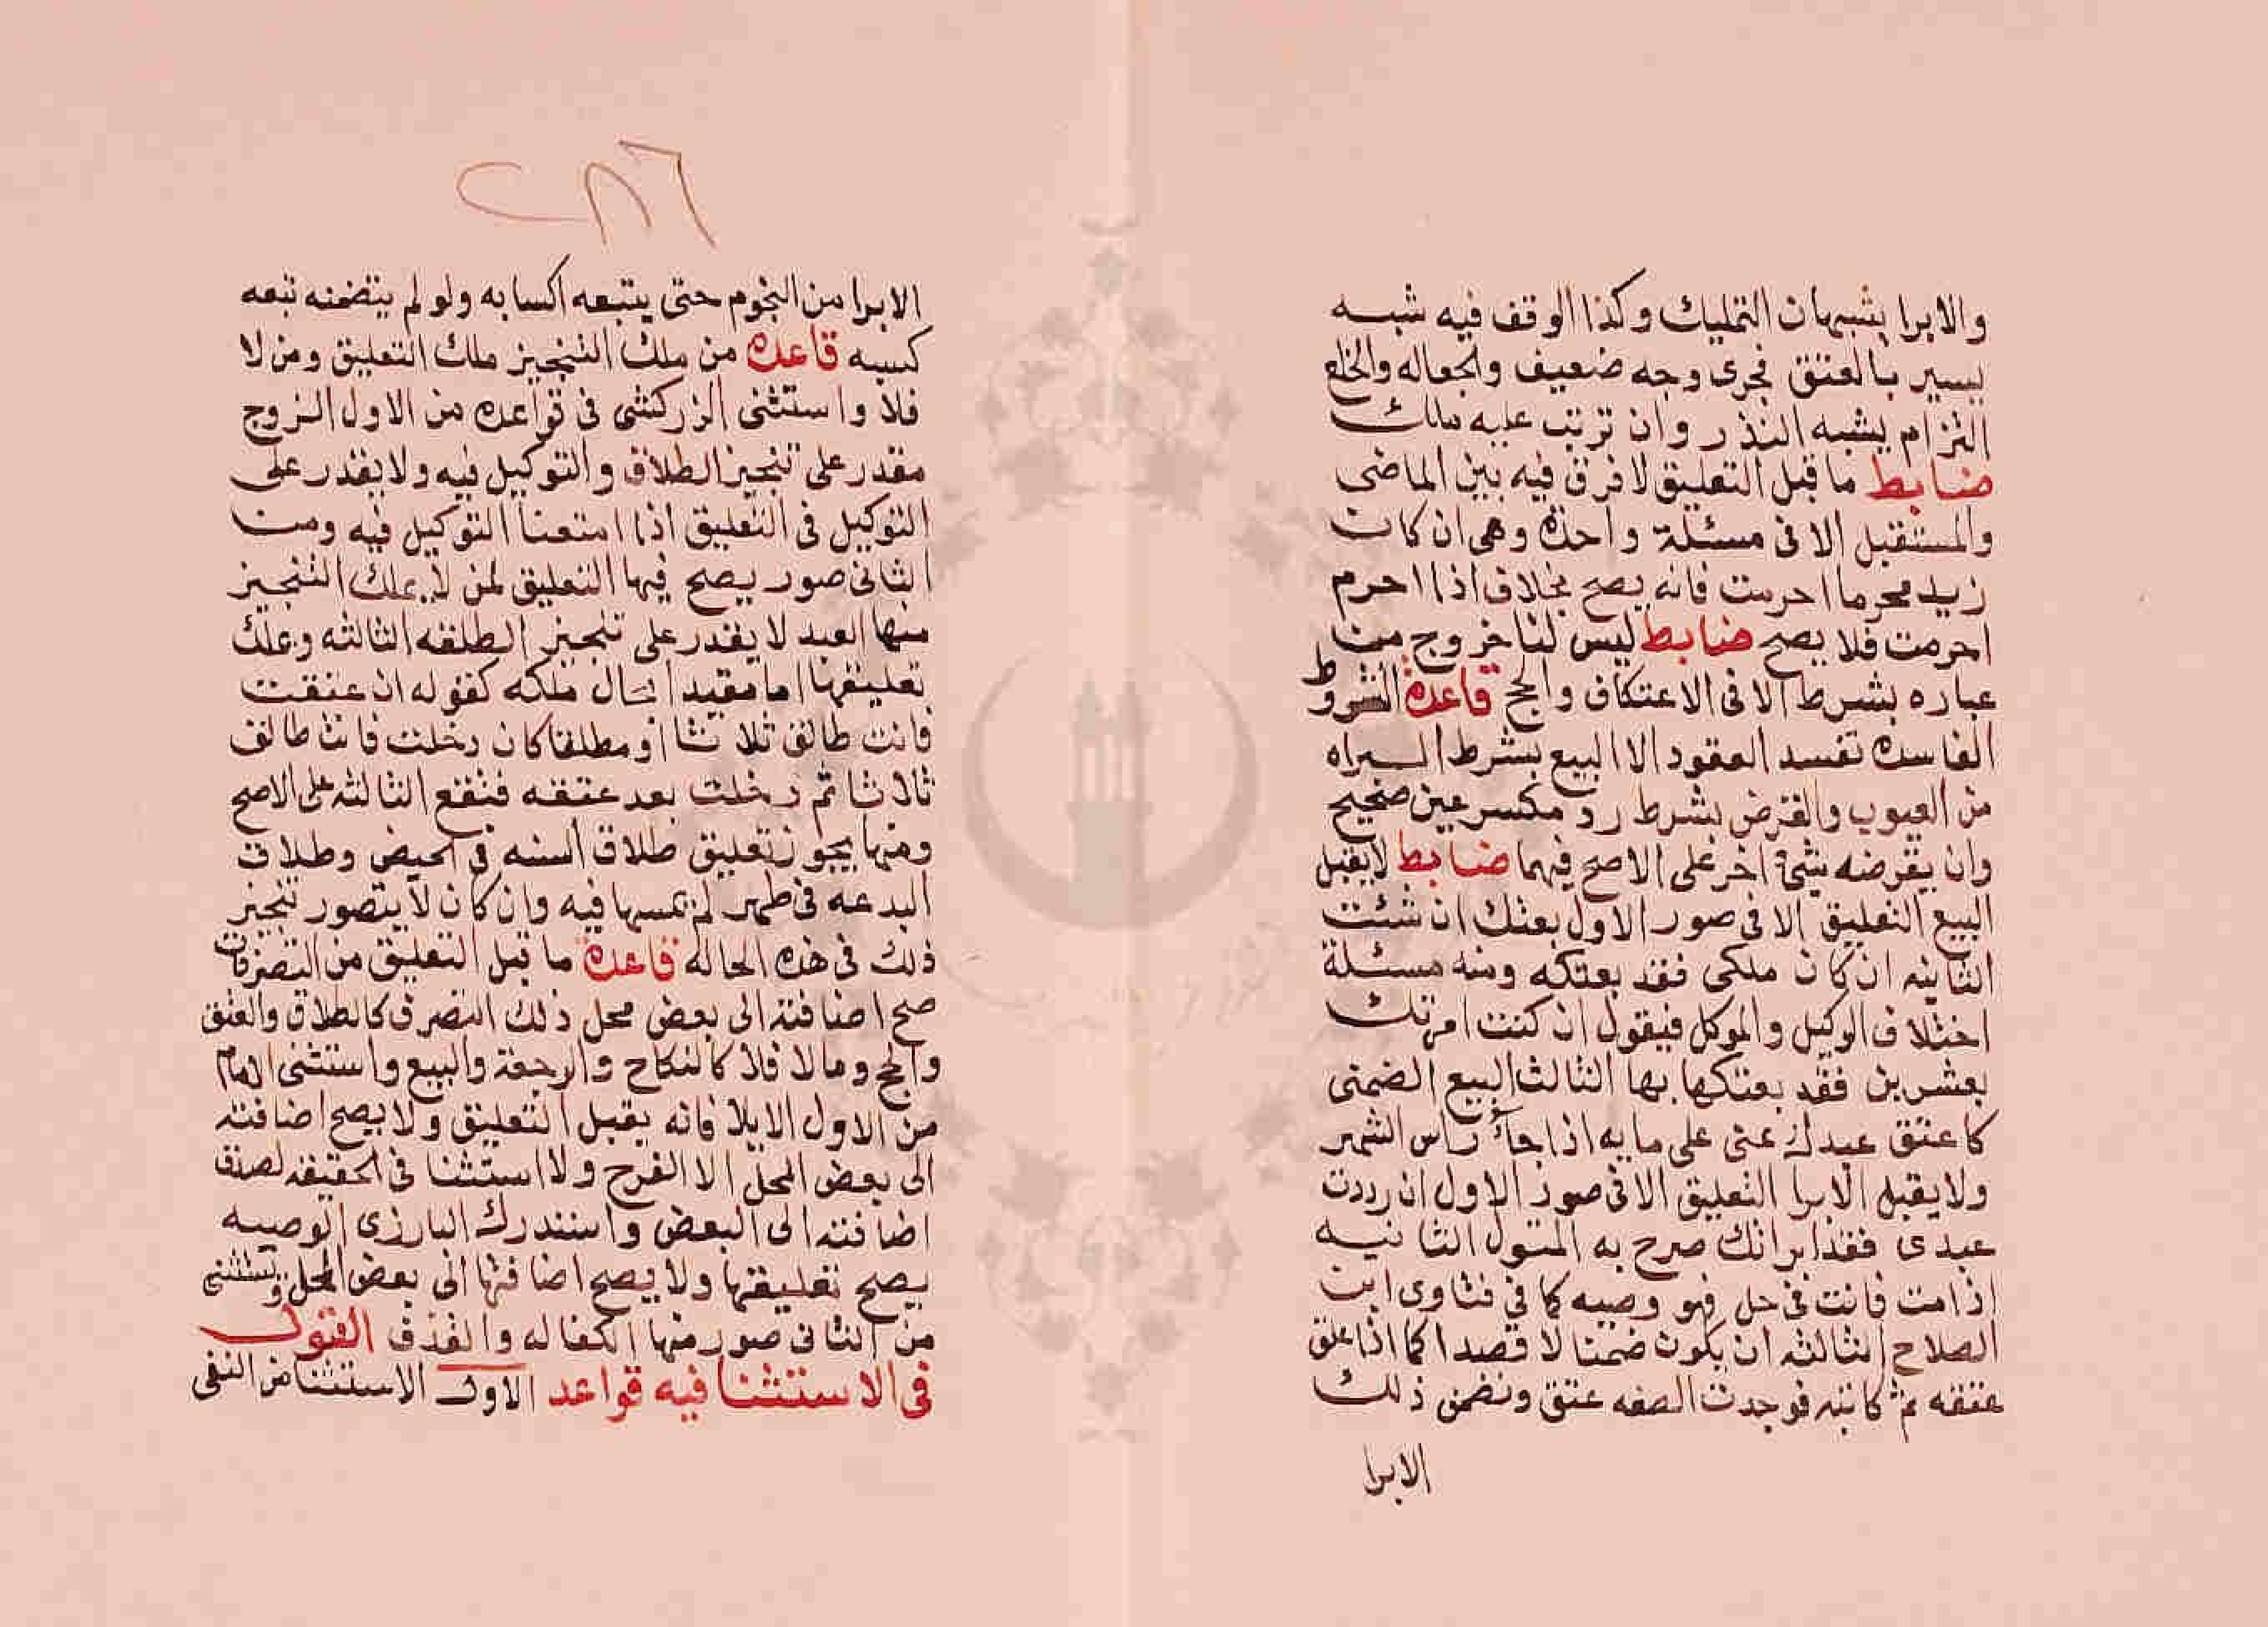 والابرا يشبهان التمليك وكذا الوقف فيه شبه
يسير بالعتق فجرى وجه ضعيف والجعاله والخلع
التزام يشبه النذر وان ترتب عليه ملك
ضابط ما قبل التعليق لا فرق فيه بين الماضى
والمستقبل الا فى مسئلة واحدة وهى ان كان
زيد محرما احرمت فانه يصح بخلاف اذا احرم
احرمت فلا يصح ضابط ليس لنا خروج من
عباره بشرط الا فى الاعتكاف والحج قاعدة الشروط
الفاسده تفسد العقود الا البيع بشرط البراه
من العيوب والقرض بشرط رد مكسر عين صحيح
وان يقرضه شئ اخر على الاصح فيهما ضابط لا يقبل
البيع التعليق الا فى صور الاول بعتك ان شئت
الثانيه ان كان ملكى فقد بعتكه ومنه مسئلة
اختلاف الوكيل والموكل فيقول ان كنت امرتك
بعشرين فقد بعتكها بها الثالث البيع الضمنى
كاعتق عبدك عنى على مايه اذا جآ راس الشهر
ولا يقبل الابرا التعليق الا فى صور الاول ان رددت
عبدى فقد ابراتك صرح به المتولى الثانيه
اذا مت فانت فى حل فهو وصيه كما فى فتاوى ابن
الصلاح الثالثه ان يكون ضمنا لا قصدا كما اذا علق
عتقه ثم كاتبه فوجدت الصفه عتق وتضمن ذلك
الابرا
٢٨٦
الابرا من النجوم حتى يتبعه اكسابه ولو لم يتضمنه تبعه
كسبه قاعده من ملك التنجيز ملك التعليق ومن لا
فلا واستثنى الزركشى فى قواعده من الاول الزوج
مقدر على تنجيز الطلاق والتوكيل فيه ولا يقدر على
التوكيل فى التعليق اذا امتعنا التوكيل فيه ومن
الثانى صور يصح فيها التعليق لمن لا يملك التنجيز
منها العبد لا يقدر على تنجيز الطلقه الثالثه وعلك
تعليقها اما مقيدا بحال ملكه كقوله ان عتقت
فانت طالق ثلاثا او مطلقا كان دخلت فانت طالق
ثلاثا ثم دخلت بعد عتقه فتقع الثالثه على الاصح
ومنها يجوز تعليق طلاق السنه فى الحيض وطلاق
البدعه فى طهر لم يمسها فيه وان كان لا يتصور تنجيز
ذلك فى هذه الحاله قاعدة ما قبل التعليق من التصرفات
صح اضافته الى بعض محل ذلك التصرف كالطلاق والعتق
والحج وما لا فلا كالنكاح والرجعة والبيع واستثنى الامام
من الاول الايلا فانه يقبل التعليق ولا يصح اضافته
الى بعض المحل الا الفرج ولا استثنا فى الحقيقه لصدق
اضافته الى البعض واستدرك البارزى الوصيه
يصح تعليقها ولا يصح اضافتها الى بعض المحل ويستثنى
من الثانى صور منها الكفاله والقذف القول
فى الاستثنا فيه قواعد الاولى الاستثنا من النفى